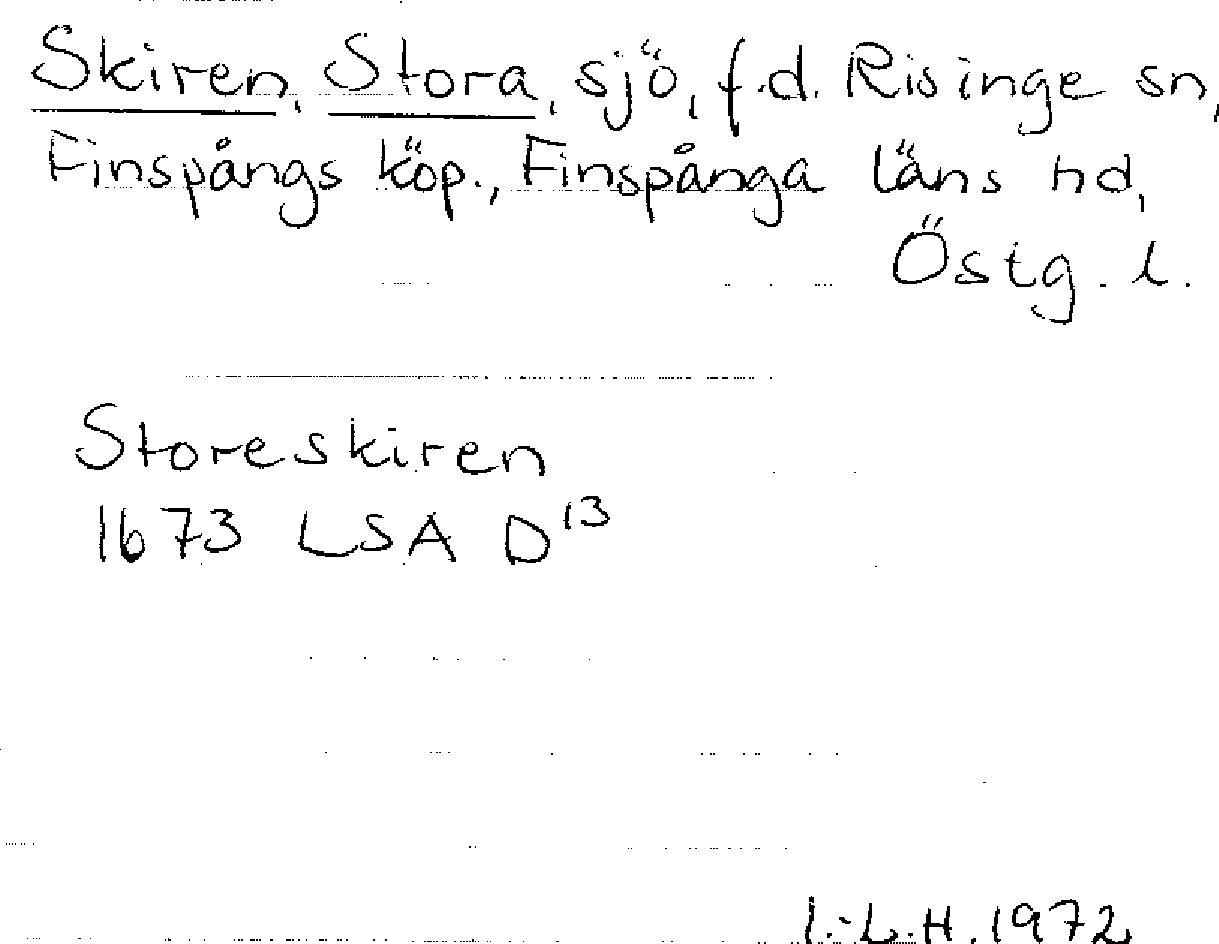 Skiren, Stora, sjö, f.d. Risinge sn,
Finspångs köp., Finspånga läns hd,
Östg. l.
Storeskiren
1673 LSA D¹³
I.-L.H. 1972